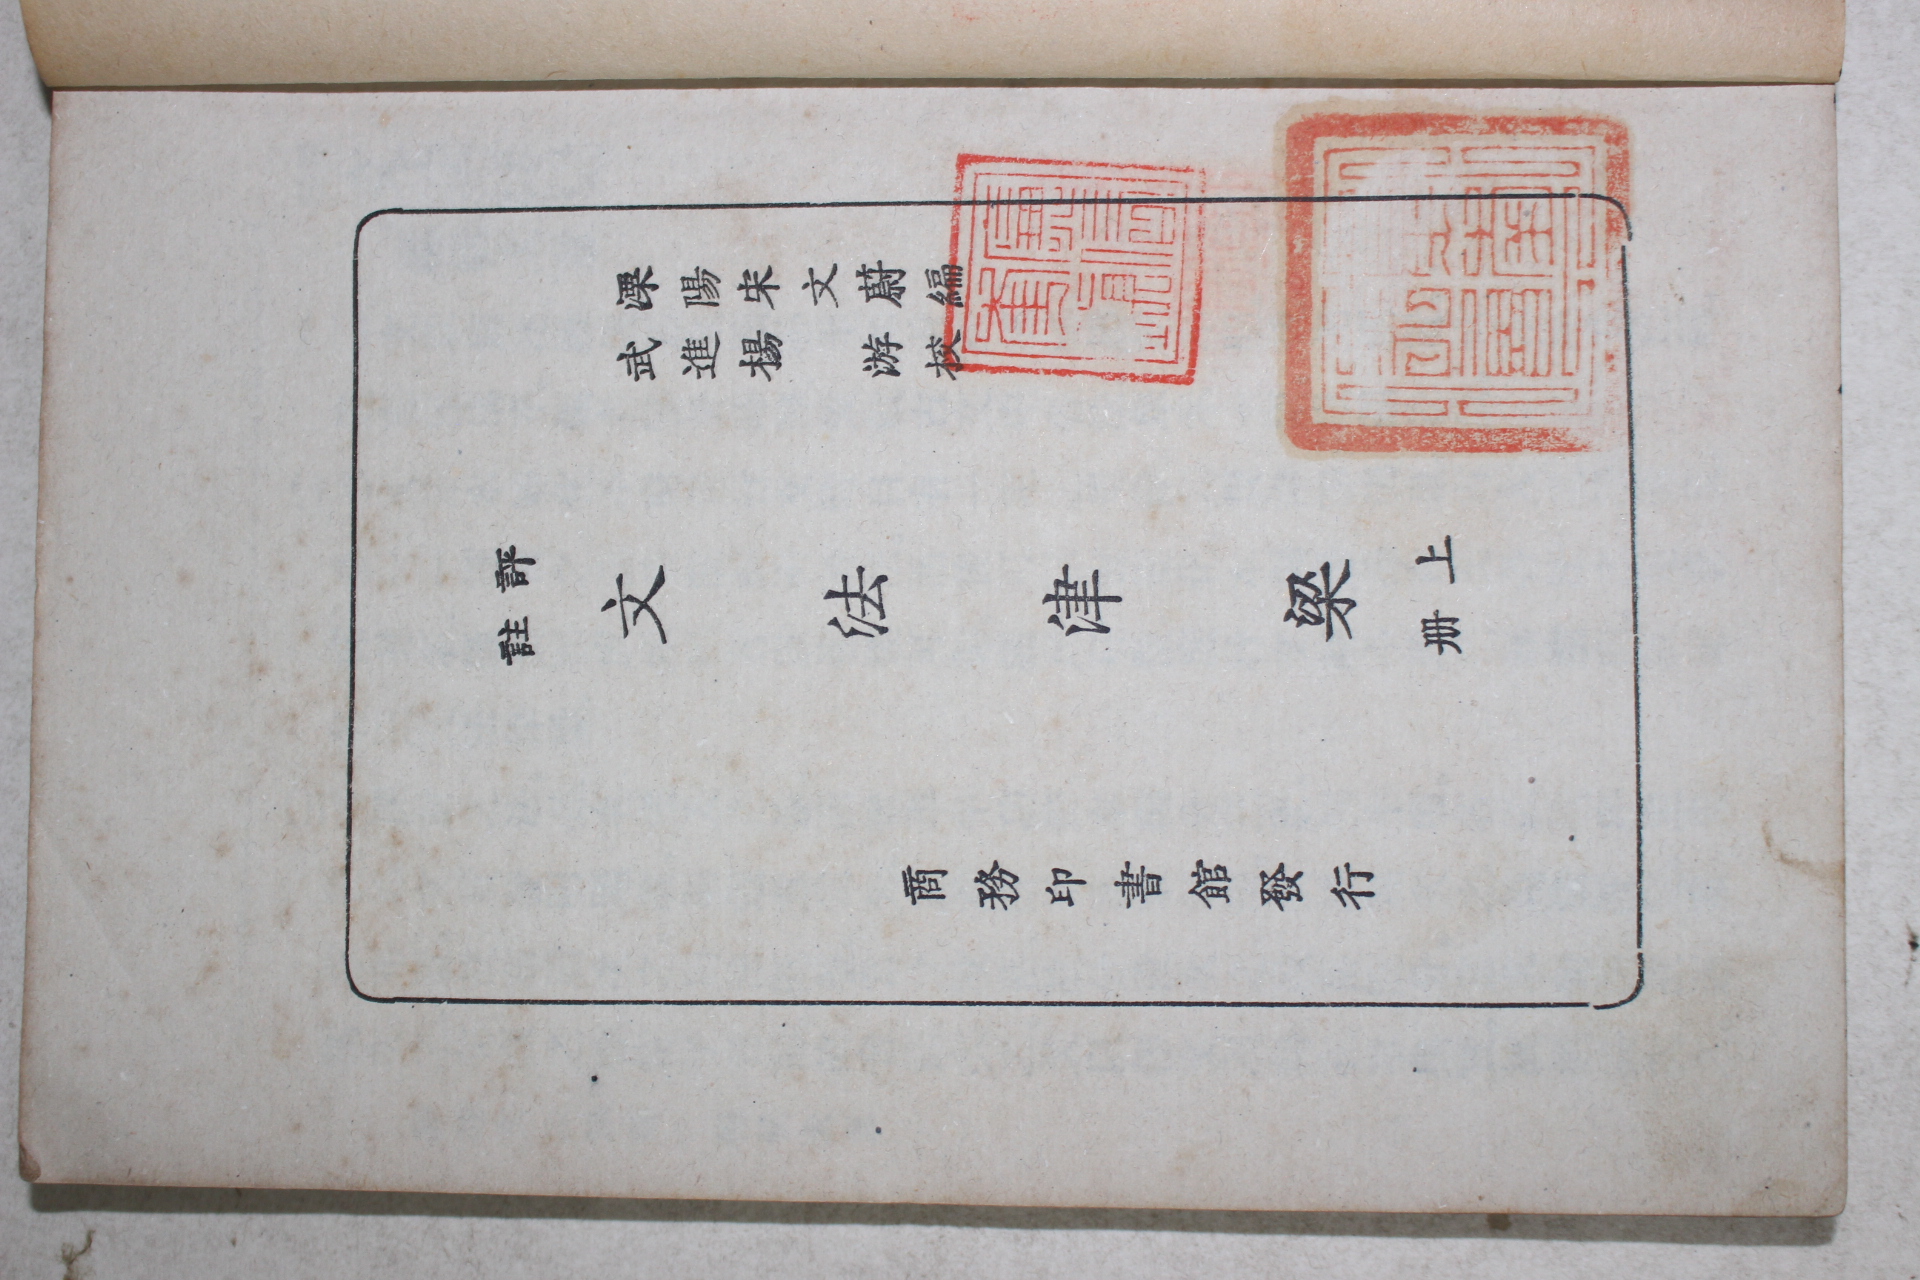 溧陽宋文蔚編
武進楊 游校
評註文法津梁上册
商務印書館發行